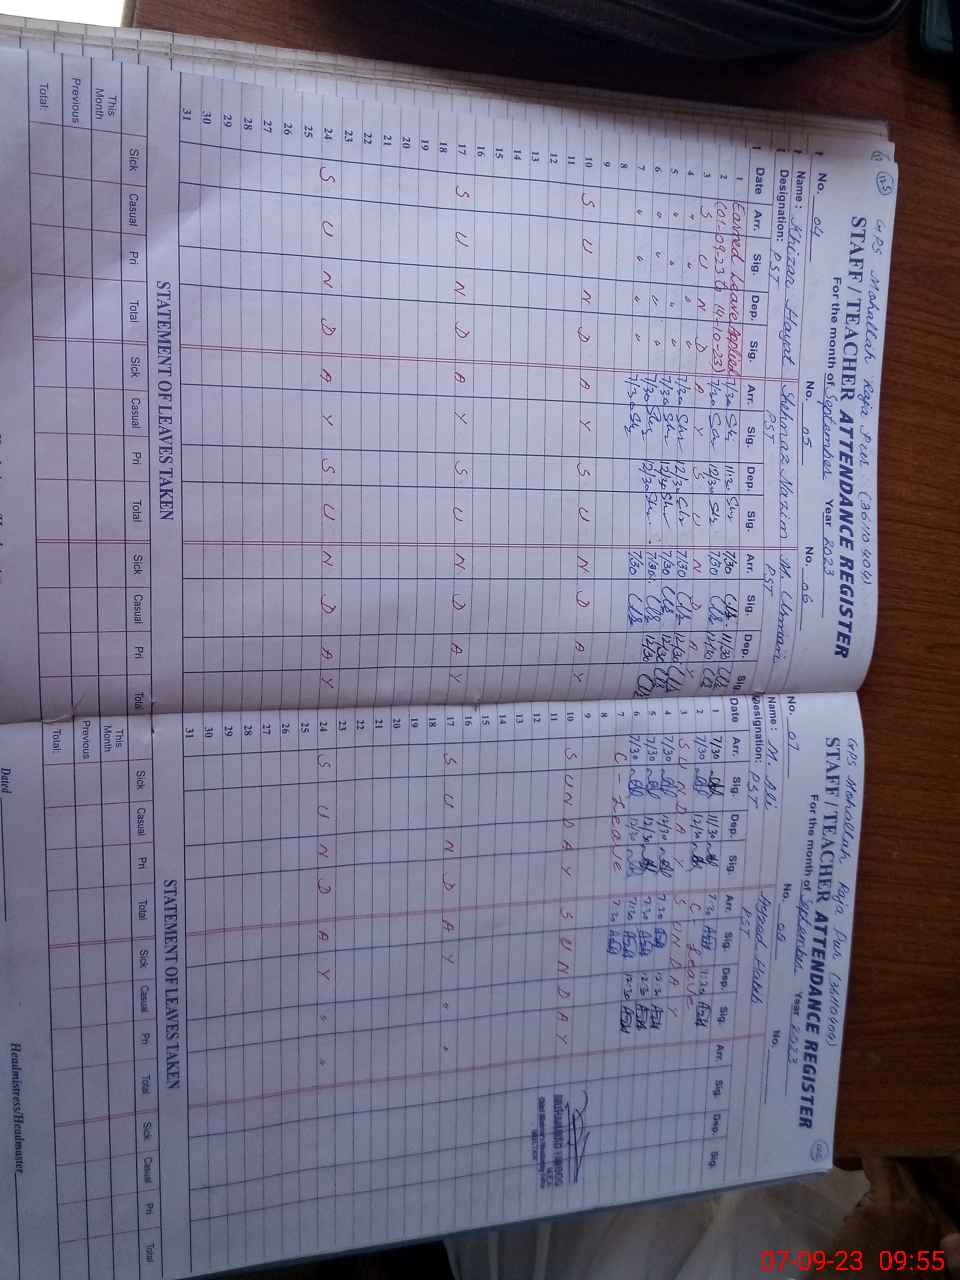 125
GPS Mohallah Raja Pur (36110404)
STAFF / TEACHER ATTENDANCE REGISTER
For the month of September Year 2023
No. 04 No. 05 No. 06
Name: Khizar Hayat Shehnaz Nazim M. Usman
Designation: PST PST PST
Date Arr. Sig. Dep. Sig. Arr. Sig. Dep. Sig. Arr. Sig. Dep. Sig.
1 Earned Leave Applied 7/30 11/30 7/30 11/30
2 (01-09-23 to 14-10-23) 7/30 12/30 7/30 12/30
3 S U N D A Y S U N D A Y
4 " " " " 7/30 12/30 7/30 12/30
5 " " " " 7/30 12/30 7/30 12/30
6 " " " " 7/30 12/30 7/30 12/30
7 " " " " 7/30 7/30
8
9
10 S U N D A Y S U N D A Y
11
12
13
14
15
16
17 S U N D A Y S U N D A Y
18
19
20
21
22
23
24 S U N D A Y S U N D A Y
25
26
27
28
29
30
31
STATEMENT OF LEAVES TAKEN
Sick Casual Pri Total Sick Casual Pri Total Sick Casual Pri Total
This Month
Previous
Total:
GPS Mohallah Raja Pur (36110404)
STAFF / TEACHER ATTENDANCE REGISTER
For the month of September Year 2023
No. 07 No. 08 No.
Name: M. Ali Habib
Designation: PST PST
Date Arr. Sig. Dep. Sig. Arr. Sig. Dep. Sig. Arr. Sig. Dep. Sig.
1 7/30 11/30 7:30 11:30
2 7/30 12/30 C- Leave
3 S U N D A Y S U N D A Y
4 7/30 12/30 7:30 12:30
5 7/30 12/30 7:30 12:30
6 7/30 12/30 7:30 12:30
7 C- Leave 7:30
8
9
10 S U N D A Y S U N D A Y
11
12
13
14
15
16
17 S U N D A Y " "
18
19
20
21
22
23
24 S U N D A Y " "
25
26
27
28
29
30
31
STATEMENT OF LEAVES TAKEN
Sick Casual Pri Total Sick Casual Pri Total Sick Casual Pri Total
This Month
Previous
Total:
Dated
Headmistress/Headmaster
07-09-23 09:55